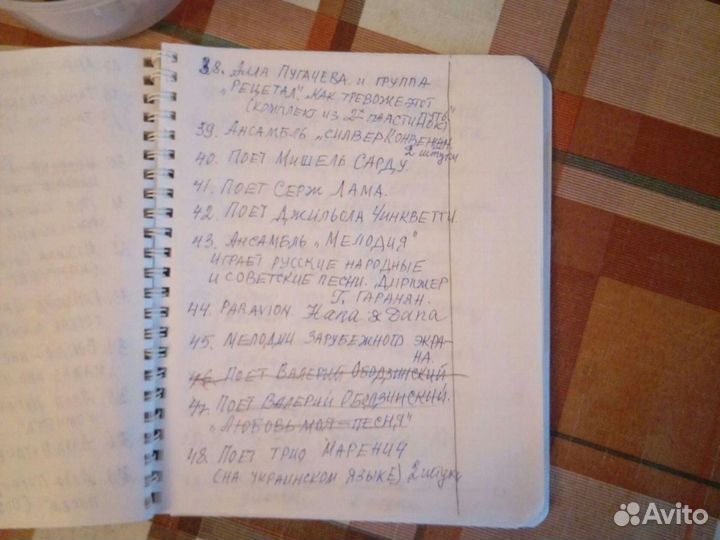 38. Алла Пугачева и группа
„Рецетал". „Как тревожен этот
путь"
(комплект из 2х пластинок)
39. Ансамбль „Силвер Конвеншн
2 штуки
40. Поет Мишель Сарду.
41. Поет Серж Лама.
42. Поет Джильола Чинкветти
43. Ансамбль „Мелодия"
играет русские народные
и советские песни. Дирижер
Г. Гаранян.
44. PARAVION
45. Мелодии зарубежного экра-
на.
46. Поет Валерий Ободзинский
47. Поет Валерий Ободзинский.
„Любовь моя - песня"
48. Поет трио Маренич
(на украинском языке) 2 штуки
Avito